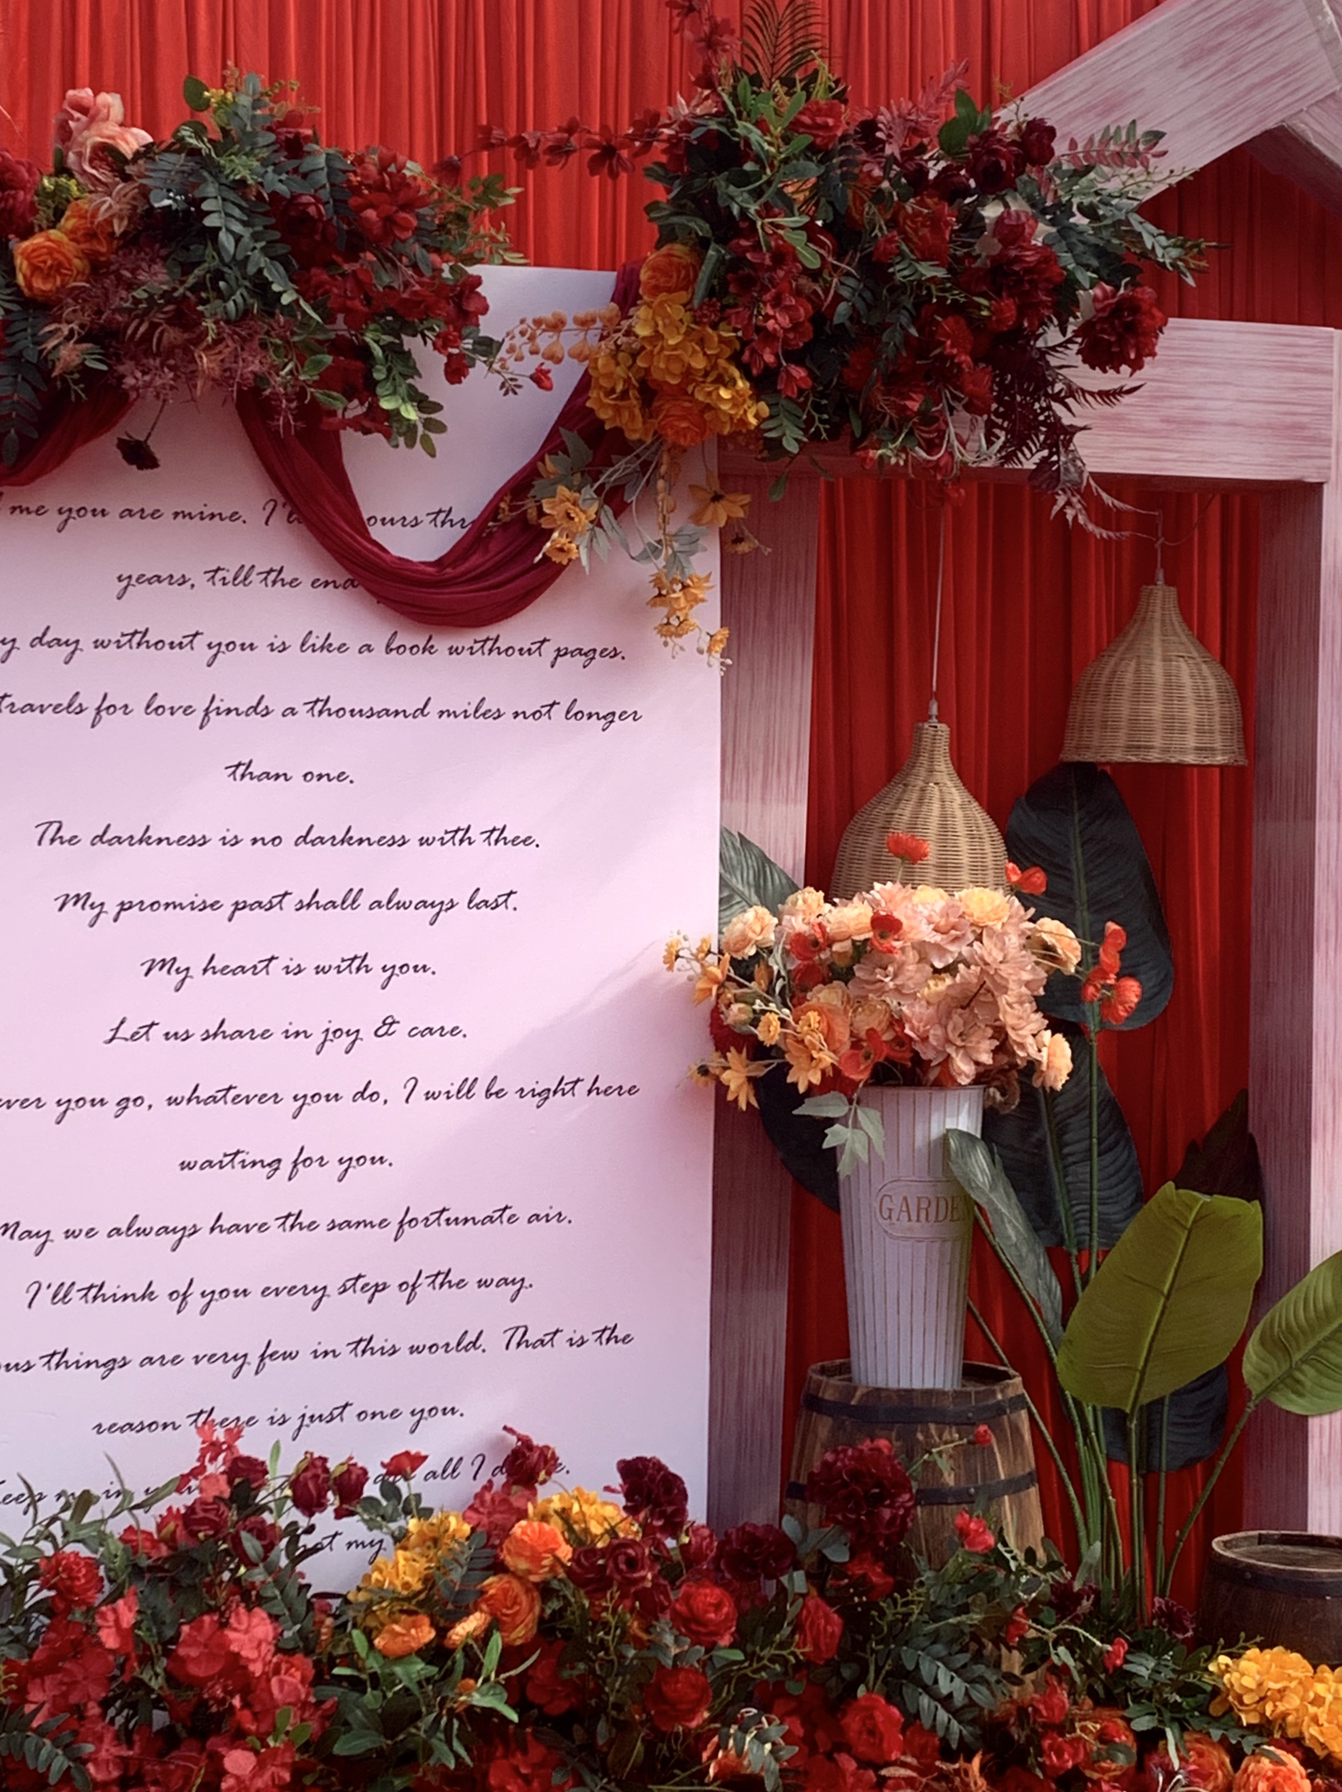 me you are mine. I'll yours
years, till the end
day without you is like a book without pages.
travels for love finds a thousand miles not longer
than one.
The darkness is no darkness with thee.
My promise past shall always last.
My heart is with you.
Let us share in joy & care.
ever you go, whatever you do, I will be right here
waiting for you.
May we always have the same fortunate air.
I'll think of you every step of the way.
ous things are very few in this world. That is the
reason there is just one you.
all I
my
GARDEN